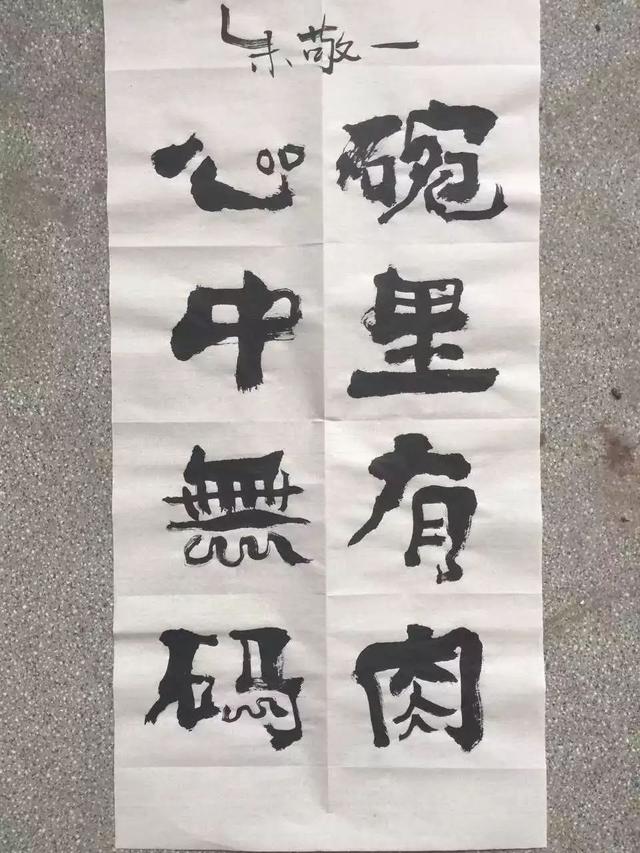 朱敬一
碗里有肉
心中無码